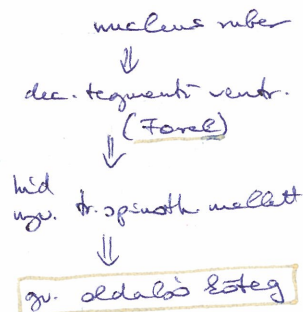 nucleus ruber
⇓
dec. tegmenti ventr.
(Forel)
⇓
híd
nyv. tr. spinoth mellett
⇓
gv. oldalsó köteg